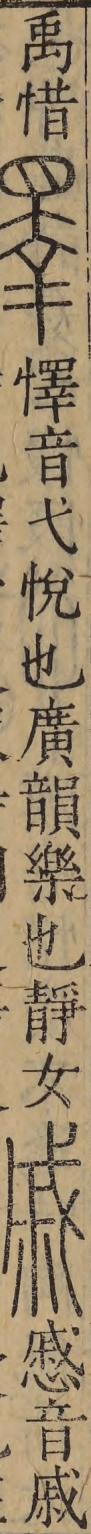 禹惜睪懌音弋悅也廣韻樂也靜女戚慼音戚